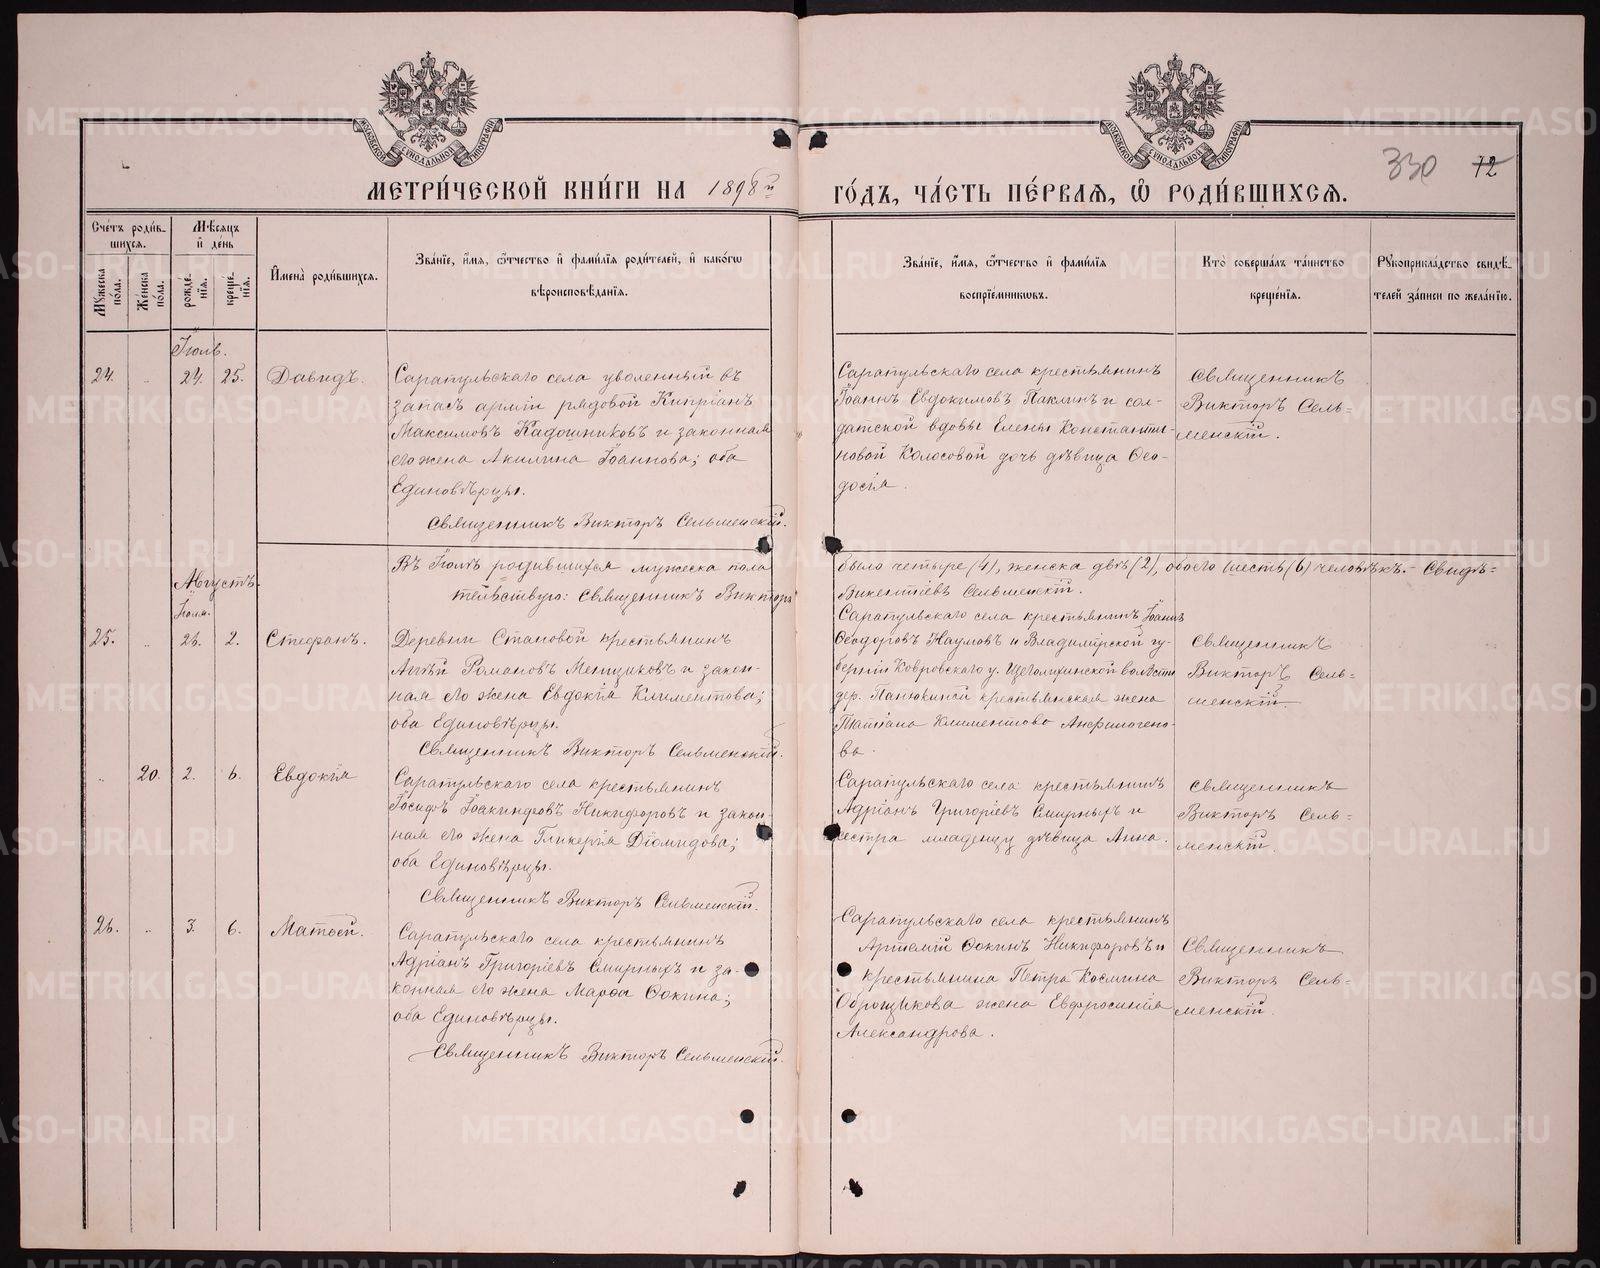 МОСКОВСКОЙ СѴНОДАЛЬНОЙ ТИПОГРАФІИ
МОСКОВСКОЙ СѴНОДАЛЬНОЙ ТИПОГРАФІИ
330 72
МЕТРИ́ЧЕСКОЙ КНИ́ГИ НА 1898й ГО́ДЪ, ЧА́СТЬ ПЕ́РВАЯ, Ѡ РОДИ́ВШИХСЯ.
Сче́тъ роди́вшихся.
Мꙋжеска по́ла.
Же́нска по́ла.
Мѣ́сяцъ и де́нь
рожде́нїя.
креще́нїя.
Имена̀ роди́вшихся.
Зва́нїе, и́мя, ѻ́тчество и фами́лїя роди́телей, и како́гѡ
вѣроисповѣ́данїя.
Зва́нїе, и́мя, ѻ́тчество и фами́лїя
воспрїе́мникѡвъ.
Кто̀ соверша́лъ та́инство
креще́нїя.
Рꙋкоприкла́дство свидѣ́-
телей за́писи по жела́нїю.
Іюль.
24. „ 24. 25. Давидъ.
Сарапульскаго села уволенный въ
запасъ арміи рядовой Кипріанъ
Максимовъ Кадошниковъ и законная
его жена Акилина Іоаннова; оба
Единовѣрцы.
Священникъ Викторъ Сельменскій.
Сарапульскаго села крестьянинъ
Іоаннъ Евдокимовъ Паклинъ и сол-
датской вдовы Елены Константи-
новой Колосовой дочь дѣвица Ѳео-
досія.
Священникъ
Викторъ Сель=
менскій.
Въ Іюлѣ родившихся мужеска пола было четыре (4), женска двѣ (2), обоего шесть (6) человѣкъ. – Свидѣ=
тельствую: Священникъ Викторъ Викентіевъ Сельменскій.
Августъ.
Іюля.
25. „ 26. 2. Стефанъ.
Деревни Становой крестьянинъ
Аггѣй Романовъ Меншиковъ и закон-
ная его жена Евдокія Климентова;
оба Единовѣрцы.
Священникъ Викторъ Сельменскій.
Сарапульскаго села крестьянинъ Іоаннъ
Ѳеодоровъ Наумовъ и Владимірской гу-
берніи Ковровскаго у. волости
дер. крестьянская жена
Татіана Климентова Анфиногено-
ва.
Священникъ
Викторъ Сель=
менскій.
„ 20. 2. 6. Евдокія
Сарапульскаго села крестьянинъ
Іосифъ Іоакинфовъ Никифоровъ и закон-
ная его жена Гликерія Діомидова;
оба Единовѣрцы.
Священникъ Викторъ Сельменскій.
Сарапульскаго села крестьянинъ
Адріанъ Григоріевъ Смирныхъ и
сестра младенцу дѣвица Анна.
Священникъ
Викторъ Сель=
менскій.
26. „ 3. 6. Матѳей.
Сарапульскаго села крестьянинъ
Адріанъ Григоріевъ Смирныхъ и за-
конная его жена Марѳа Ѳокина;
оба Единовѣрцы.
Священникъ Викторъ Сельменскій.
Сарапульскаго села крестьянинъ
Артемій Ѳокинъ Никифоровъ и
крестьянина Петра Космина
Оброщикова жена Евфросинія
Александрова.
Священникъ
Викторъ Сель-
менскій.